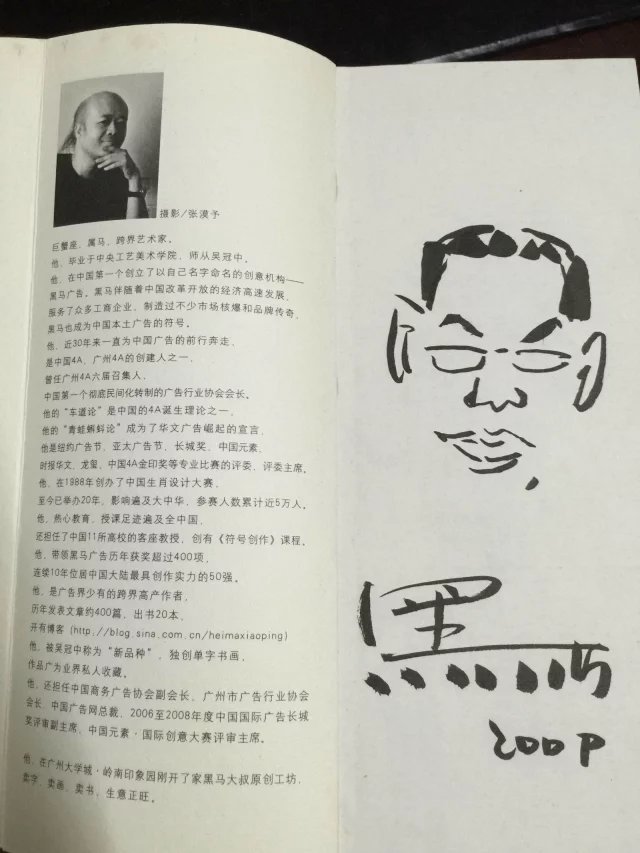 摄影/张漠予
巨蟹座，属马，跨界艺术家。
他，毕业于中央工艺美术学院，师从吴冠中。
他，在中国第一个创立了以自己名字命名的创意机构——
黑马广告。黑马伴随着中国改革开放的经济高速发展，
服务了众多工商企业，制造过不少市场核爆和品牌传奇，
黑马也成为中国本土广告的符号。
他，近30年来一直为中国广告的前行奔走，
是中国4A、广州4A的创建人之一，
曾任广州4A六届召集人，
中国第一个彻底民间化转制的广告行业协会会长。
他的“车道论”是中国的4A诞生理论之一，
他的“青蛙蝌蚪论”成为了华文广告崛起的宣言，
他是纽约广告节、亚太广告节、长城奖、中国元素、
时报华文、龙玺、中国4A金印奖等专业比赛的评委、评委主席。
他，在1988年创办了中国生肖设计大赛，
至今已举办20年，影响遍及大中华，参赛人数累计近5万人。
他，热心教育，授课足迹遍及全中国，
还担任了中国11所高校的客座教授，创有《符号创作》课程。
他，带领黑马广告历年获奖超过400项，
连续10年位居中国大陆最具创作实力的50强。
他，是广告界少有的跨界高产作者，
历年发表文章约400篇，出书20本，
开有博客（http://blog.sina.com.cn/heimaxiaoping）
他，被吴冠中称为“新品种”，独创单字书画，
作品广为业界私人收藏。
他，还担任中国商务广告协会副会长、广州市广告行业协会
会长、中国广告网总裁，2006至2008年度中国国际广告长城
奖评审副主席，中国元素·国际创意大赛评审主席。
他，在广州大学城·岭南印象园刚开了家黑马大叔原创工坊，
卖字、卖画、卖书，生意正旺。
黑马